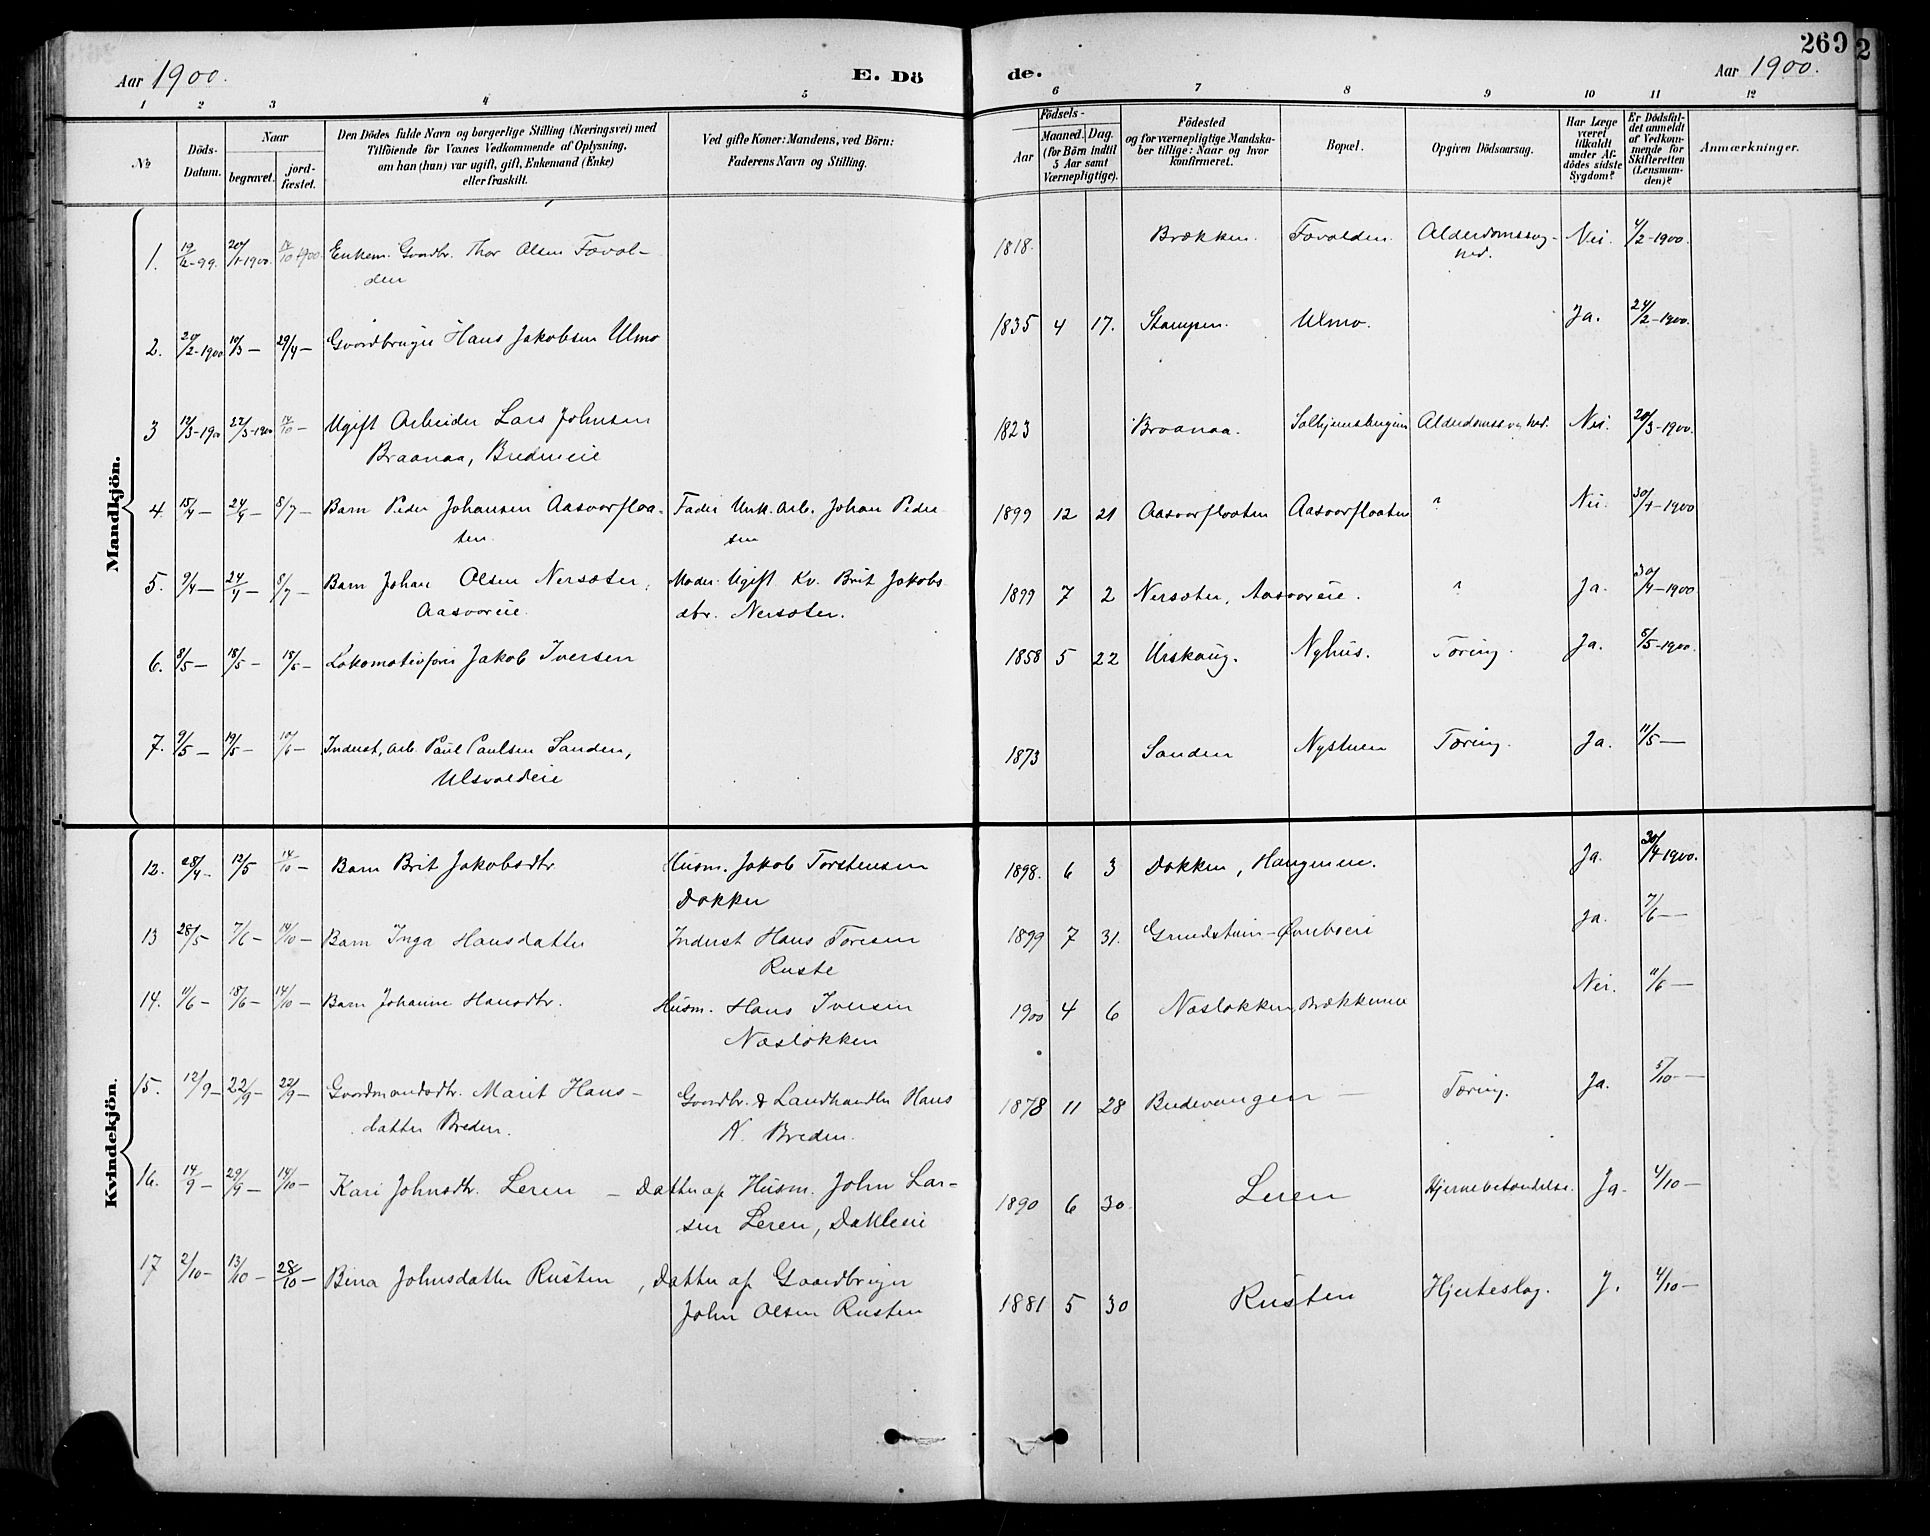 269
2
Aar 1900. E. Dö de. Aar 1900.
1 2 3 4 5 6 7 8 9 10 11 12
No
Döds-
Datum.
Naar
begravet.
jord-
fæstet.
Den Dödes fulde Navn og borgerlige Stilling (Næringsvei) med
Tilföiende for Voxnes Vedkommende af Oplysning,
om han (hun) var ugift, gift, Enkemand (Enke)
eller fraskilt.
Ved gifte Koner: Mandens, ved Börn:
Faderens Navn og Stilling.
Födsels-
Aar
Maaned. Dag.
(for Börn indtil
5 Aar samt
Værnepligtige).
Födested
og for værnepligtige Mandska-
ber tillige: Naar og hvor
konfirmeret.
Bopæl.
Opgiven Dödsaarsag.
Har Læge
været
tilkaldt
under Af-
dödes sidste
Sygdom?
Er Dödsfal-
det anmeldt
af Vedkom-
mende for
Skifteretten
(Lensman-
den)?
Anmærkninger.
Mandkjön.
1. 19/6-99 20/1-1900. 14/10 1900. Enkem. Gaardbr. Thor Olsen Favol- 1818. Brækken. Favolden. Alderdomssvag- Nei. 4/2-1900.
den hed.
2. 20/2-1900 10/3 — 29/4 — Gaardbruger Hans Jakobsen Ulmo 1835 4 17. Stampen. Ulmo. Ja. 24/2-1900.
3 12/3-1900 22/3-1900 14/10 — Ugift Arbeider Lars Johnsen 1823 Braanaa. Alderdomssvaghed. Nei. 20/3-1900.
Braanaa, Bredeneie
4. 15/4 — 24/4 — 8/7 — Barn Peder Johansen Aasaarfloa- Fader Arb. Johan Peder 1899 12 21 Aasaarfloaten Aasaarfloaten " Nei. 30/4-1900
ten. sen
5. 9/4 — 24/4 — 8/7 — Barn Johan Olsen Nersæter, Moder. Ugift Kv. Brit Jakobs 1899 7 2 Nersæter, Aasaareie. " Ja. 30/4-1900
Aasaareie. dtr. Nersæter.
6. 8/5 — 18/5 — 18/5 — Lokomotivförer Jakob Iversen 1858 5 22 Urskaug. Nyhus. Tæring. Ja. 8/5-1900.
7. 9/5 — 19/5 — 10/6 — Indust. Arb. Paul Paulsen Sanden, 1873 Sanden Nystuen Tæring. Ja. 11/5 —
Ulsvoldeie
Kvindekjön.
12. 28/4 — 12/5 14/10 — Barn Brit Jakobsdtr Husm. Jakob Torstensen 1898. 6 3 Dokken, Haugeneie. Ja. 30/4-1900.
Dokken
13 28/5 7/6 — 14/10 — Barn Inga Hansdatter Indust Hans Toresen 1899 7 31. Grindstuen - Øvreboeie Ja. 7/6 —
Ruste
14. 11/6 — 18/6 — 14/10 — Barn Johanne Hansdtr. Husm. Hans Iversen 1900 4 6 Næsløkken, Brækkeneie Nei. 11/6 —
Næsløkken
15. 12/9 — 22/9 — 22/9 — Gaardmandsdtr. Marit Hans- Gaardbr. & Landhandler Hans 1878 11 28 Bredevangen — Tæring. Ja. 5/10 —
datter Breden. N. Breden.
16. 14/9 — 29/9 — 14/10 — Kari Johnsdtr. Leren — Datter af Husm. John Lar- 1890 6 30 Leren Hjernebetændelse. Ja. 4/10 —
sen Leren, Dahleeie
17 2/10 — 13/10 — 28/10 — Bina Johnsdatter Rusten, Datter af Gaardbruger 1881 5 30 Rusten Hjerteslag. J. 4/10 —
John Olsen Rusten